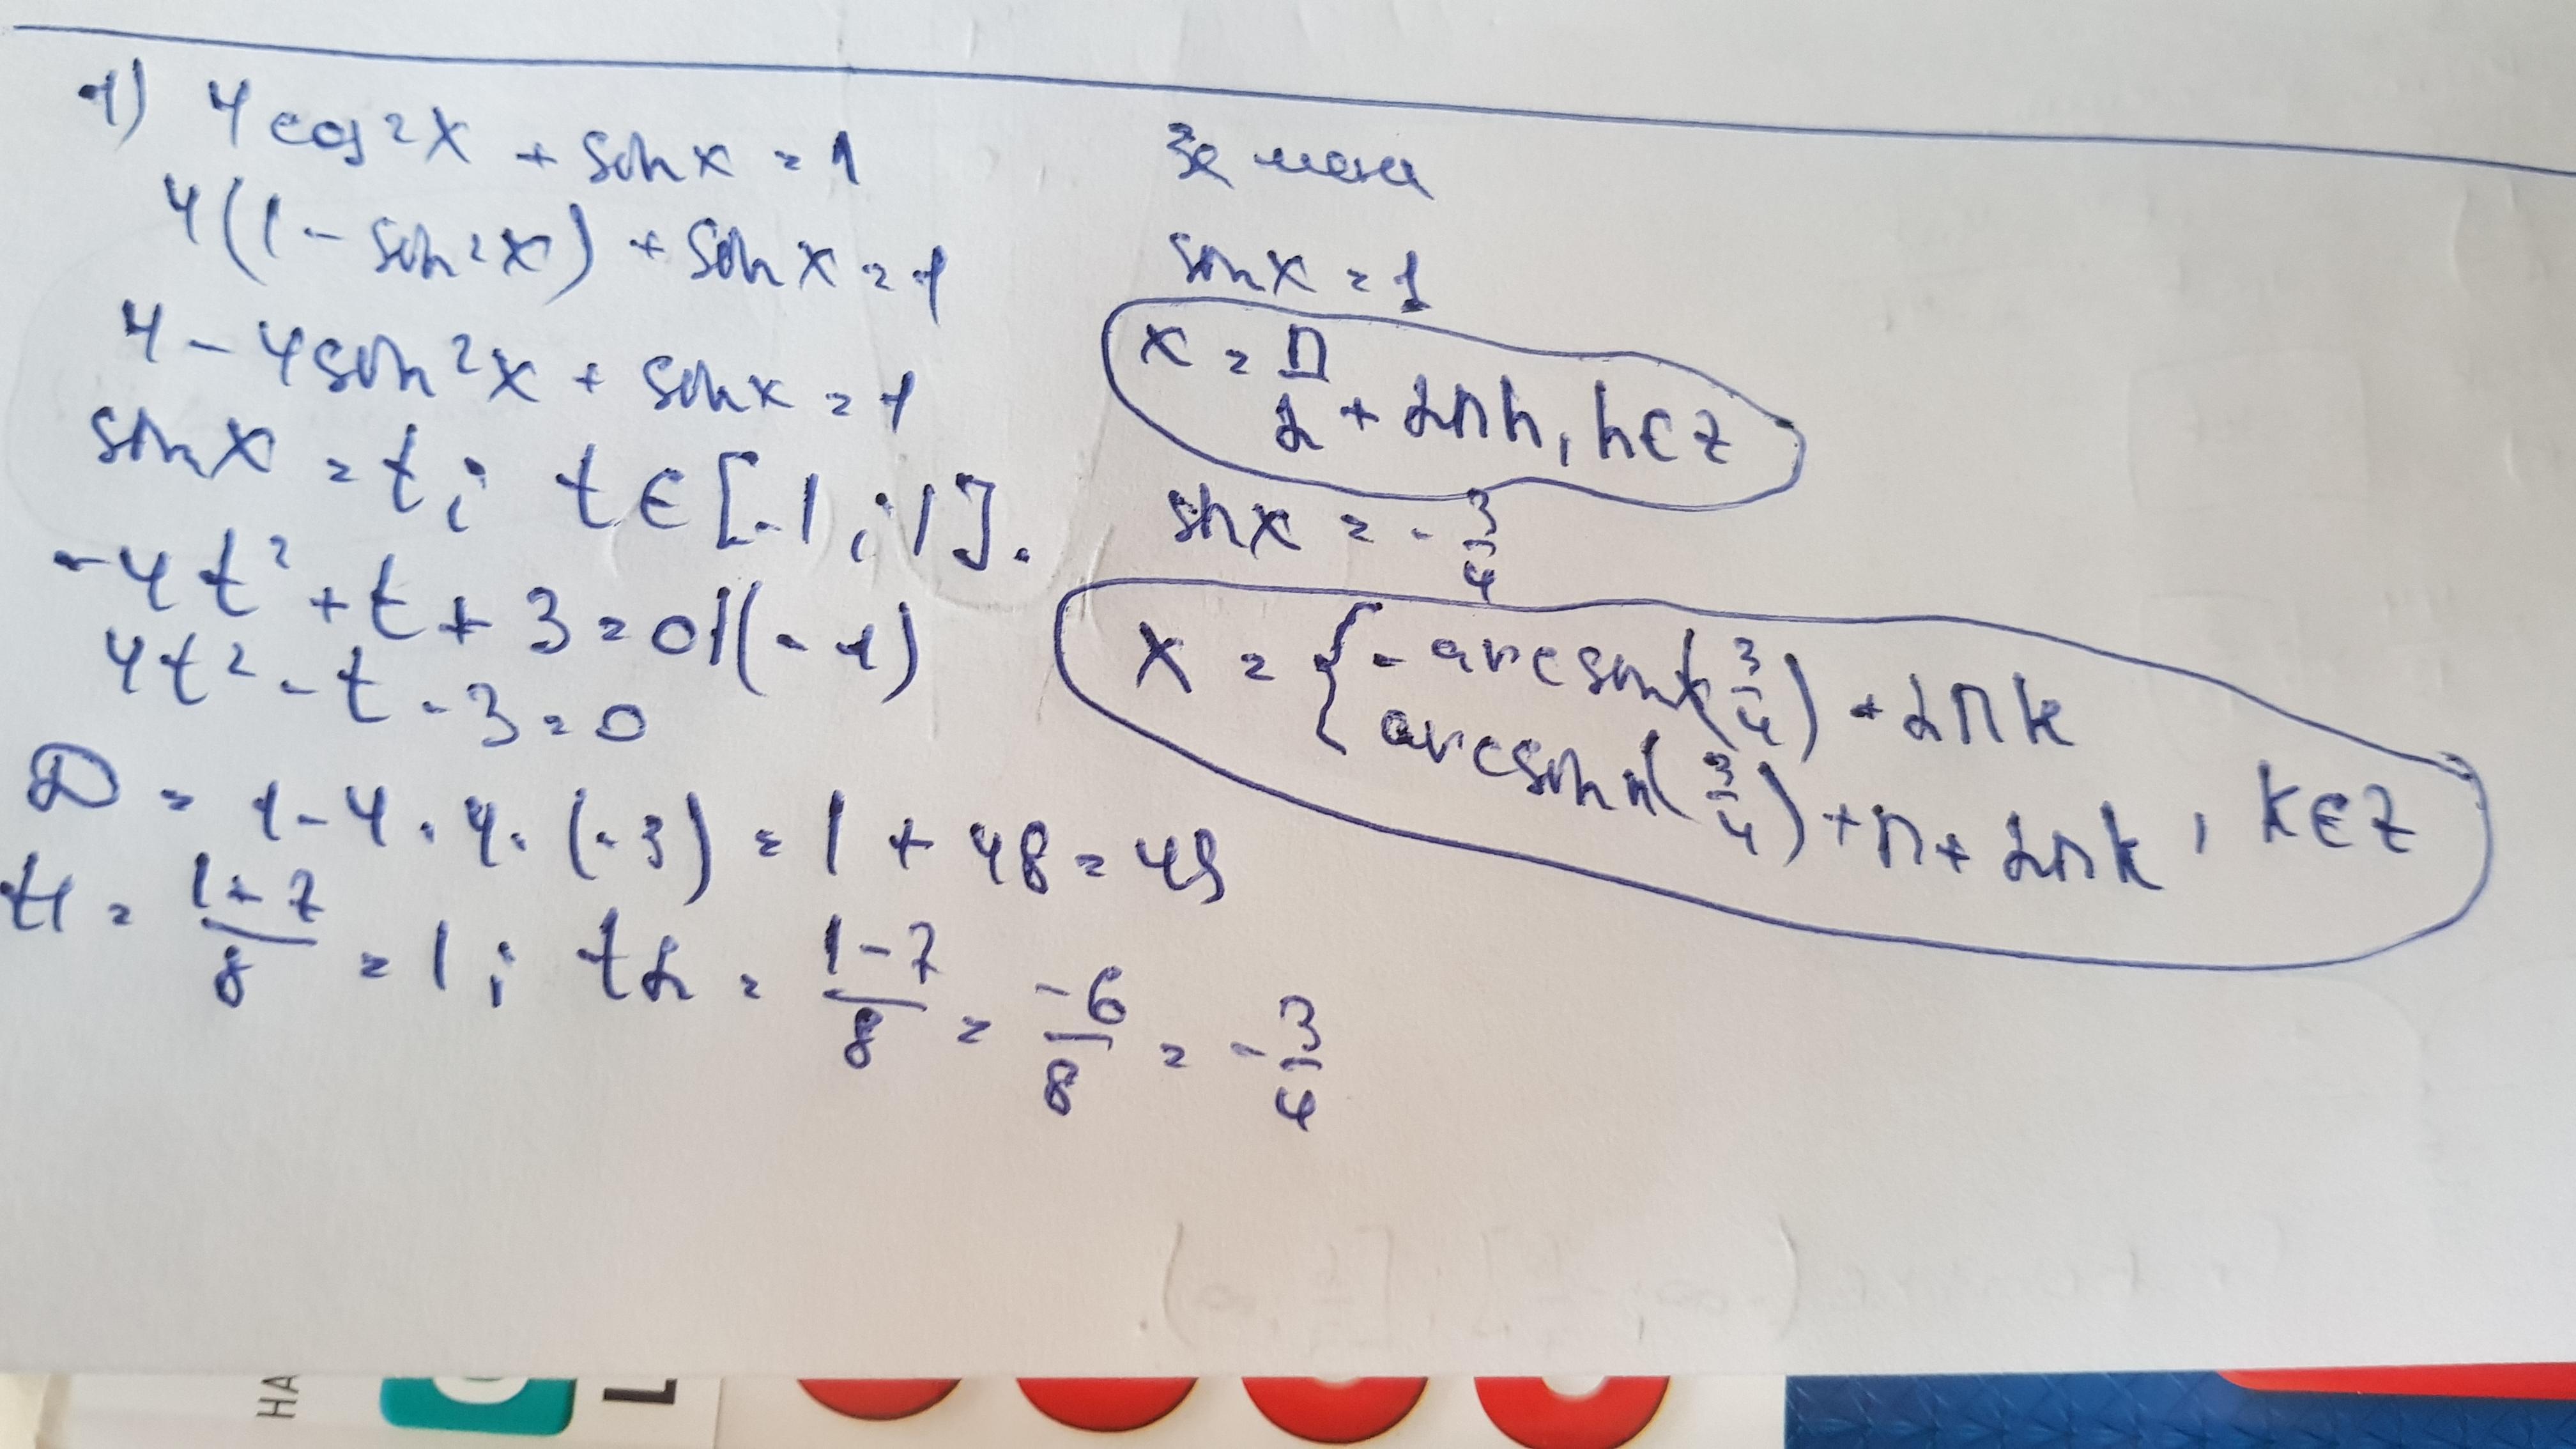 1) 4cos²x + sinx = 1
4(1 - sin²x) + sinx = 1
4 - 4sin²x + sinx = 1
sinx = t; t∈[-1;1].
-4t² + t + 3 = 0 |(-1)
4t² - t - 3 = 0
D = 1 - 4·4·(-3) = 1 + 48 = 49
t1 = (1+7)/8 = 1; t2 = (1-7)/8 = -6/8 = -3/4
sinx = 1
x = π/2 + 2πn, n∈Z
sinx = -3/4
x = { -arcsin(3/4) + 2πk
arcsin(3/4) + π + 2πk, k∈Z
HA
L